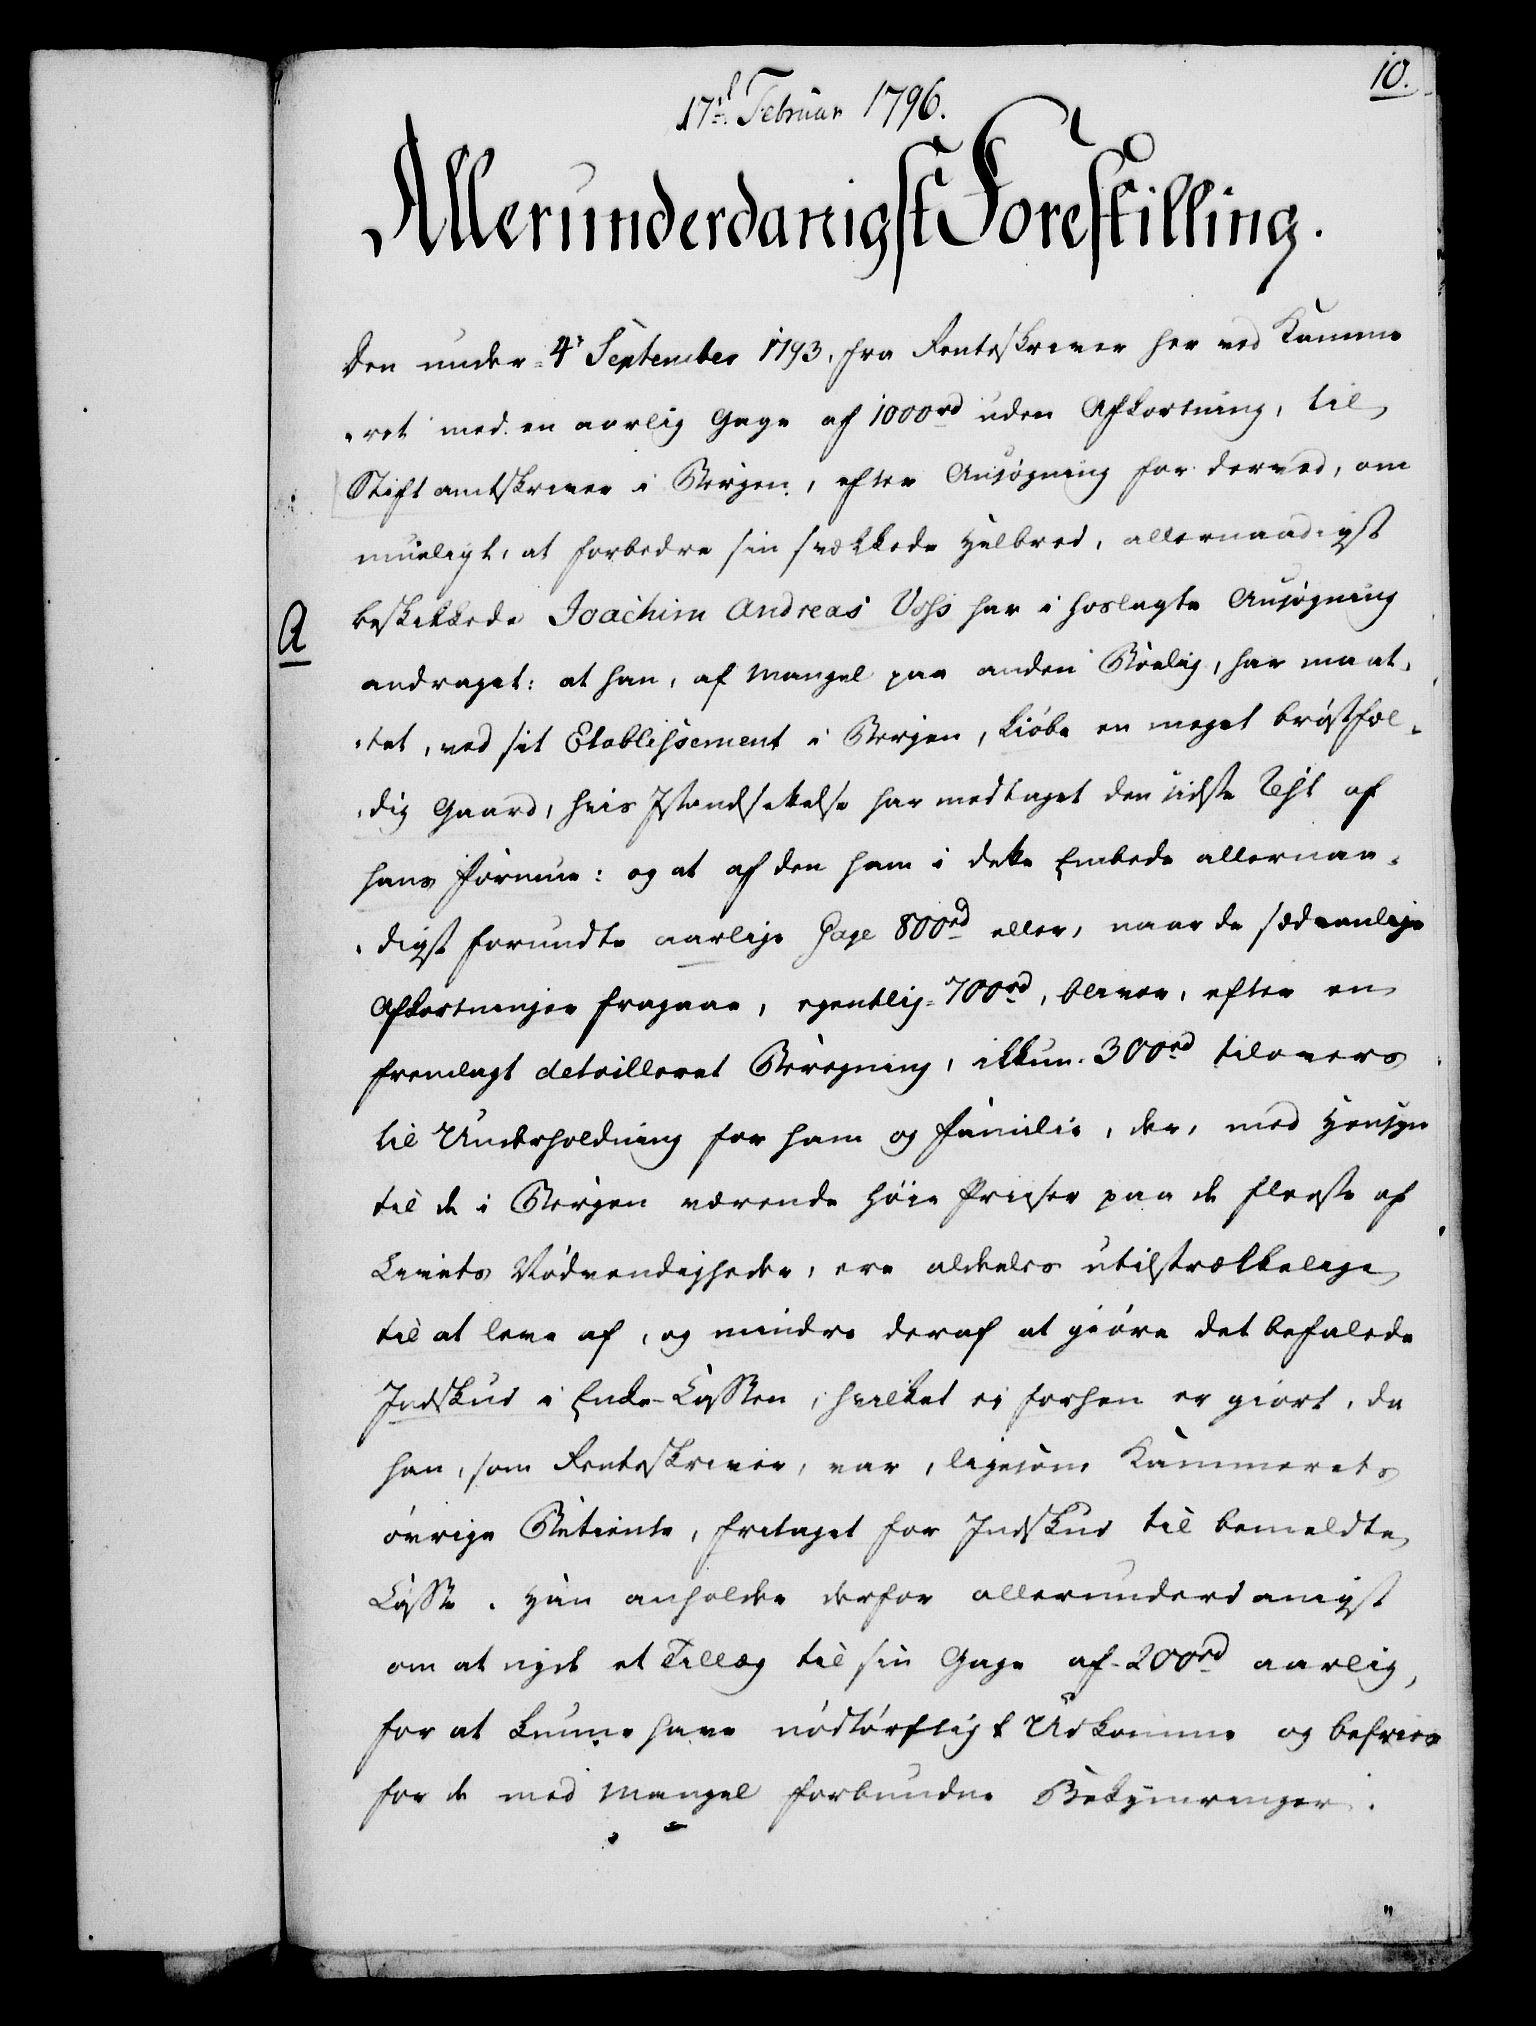 10.
17d. Februar 1796.
Allerunderdanigst Forestilling.
Den under 4de September 1793, fra Renteskriver her ved Kamme-
-ret med en aarlig Gage af 1000rd uden Afkortning, til
Stiftamtskriver i Bergen, efter Ansøgning for derved, om
mueligt, at forbedre sin svækkede Helbred, allernaadigst
A
beskikkede Joachim Andreas Voss har i hoslagte Ansøgning
andraget: at han, af Mangel paa anden Boelig, har maat-
-tet, ved sit Etablissement i Bergen, kiøbe en meget brøstfæl-
-dig Gaard, hvis Istandsættelse har medtaget den sidste Rest af
hans Formue: og at af den ham i dette Embede allernaa-
-digst forundte aarlige Gage 800rd eller, naar de sædvanlige
Afkortninger fragaae, egentlig 700rd, bliver, efter en
fremlagt detailleret Beregning, ikkun 300rd tilovers
til Underholdning for ham og Familie, der, med Hensyn
til de i Bergen værende høie Priiser paa de fleeste af
Livets Nødvendigheder, ere aldeeles utilstrækkelige
til at leve af, og mindre deraf at giøre det befalede
Indskud i Enke-Cassen, hvilket ei forhen er giort, da
han, som Renteskriver, var, ligesom Kammerets
øvrige Betiente, fritaget for Indskud til bemeldte
Casse. Han anholder derfor allerunderdanigst
om at nyde et Tillæg til sin Gage af 200rd aarlig,
for at kunne have nødtørftigt Udkomme og befries
for de med Mangel forbundne Bekymringer.
"